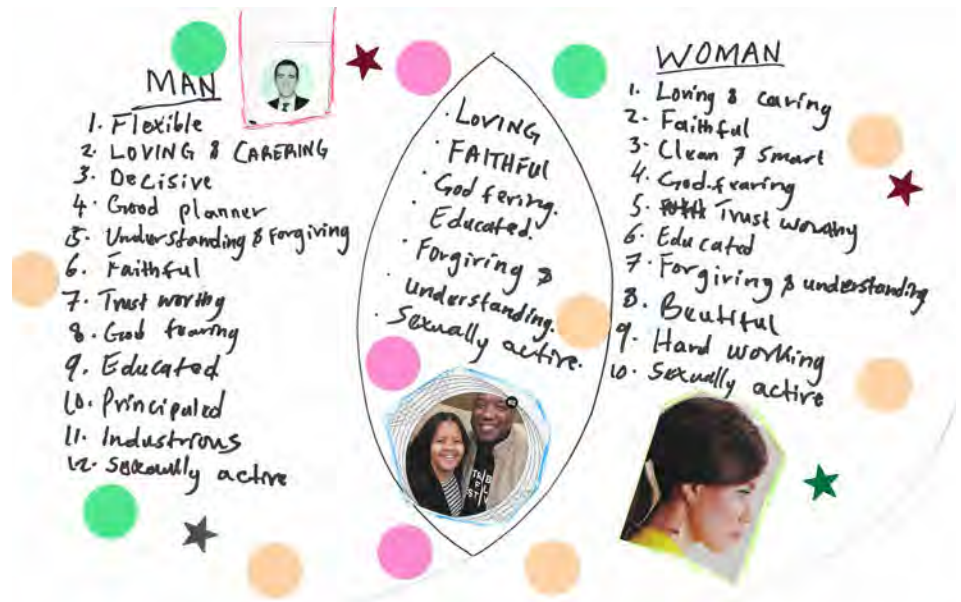 MAN
1. Flexible
2. LOVING & CARERING
3. Decisive
4. Good planner
5. Understanding & Forgiving
6. Faithful
7. Trust worthy
8. God fearing
9. Educated
10. Principaled
11. Industrious
12. Sexually active
· LOVING
· FAITHFUL
· God fering.
· Educated.
· Forgiving &
understanding.
· Sexually active.
WOMAN
1. Loving & caring
2. Faithful
3. Clean & Smart
4. God.fearing
5. Trust worthy
6. Educated
7. Forgiving & understanding
8. Beutiful
9. Hard working
10. Sexually active